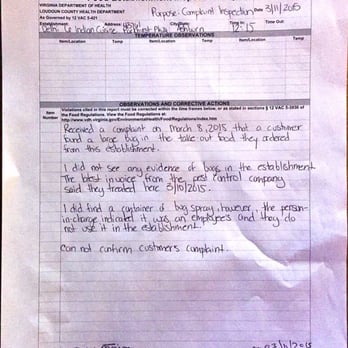 VIRGINIA DEPARTMENT OF HEALTH
LOUDOUN COUNTY HEALTH DEPARTMENT
As Governed by 12 VAC 5-421
Purpose: Complaint Inspection Date 3/11/2015
Establishment: Address: City/State: Time In: Time Out:
Delhi 6 Indian Cuisine Ashburn 12:15
TEMPERATURE OBSERVATIONS
Item/Location Temp Item/Location Temp Item/Location Temp
OBSERVATIONS AND CORRECTIVE ACTIONS
Item Number
Violations cited in this report must be corrected within the time frames below, or as stated in sections
of the Food Regulations. View the Food Regulations at:
Received a complaint on March 8, 2015 that a customer
found a large bug in the take out food they ordered
from this establishment.
I did not see any evidence of bugs in the establishment
The latest invoice from the pest control company
said they treated here 3/10/2015.
I did find a container of bug spray, however, the person-
in-charge indicated it was an employee's and they do
not use it in the establishment.
Can not confirm customers complaint.